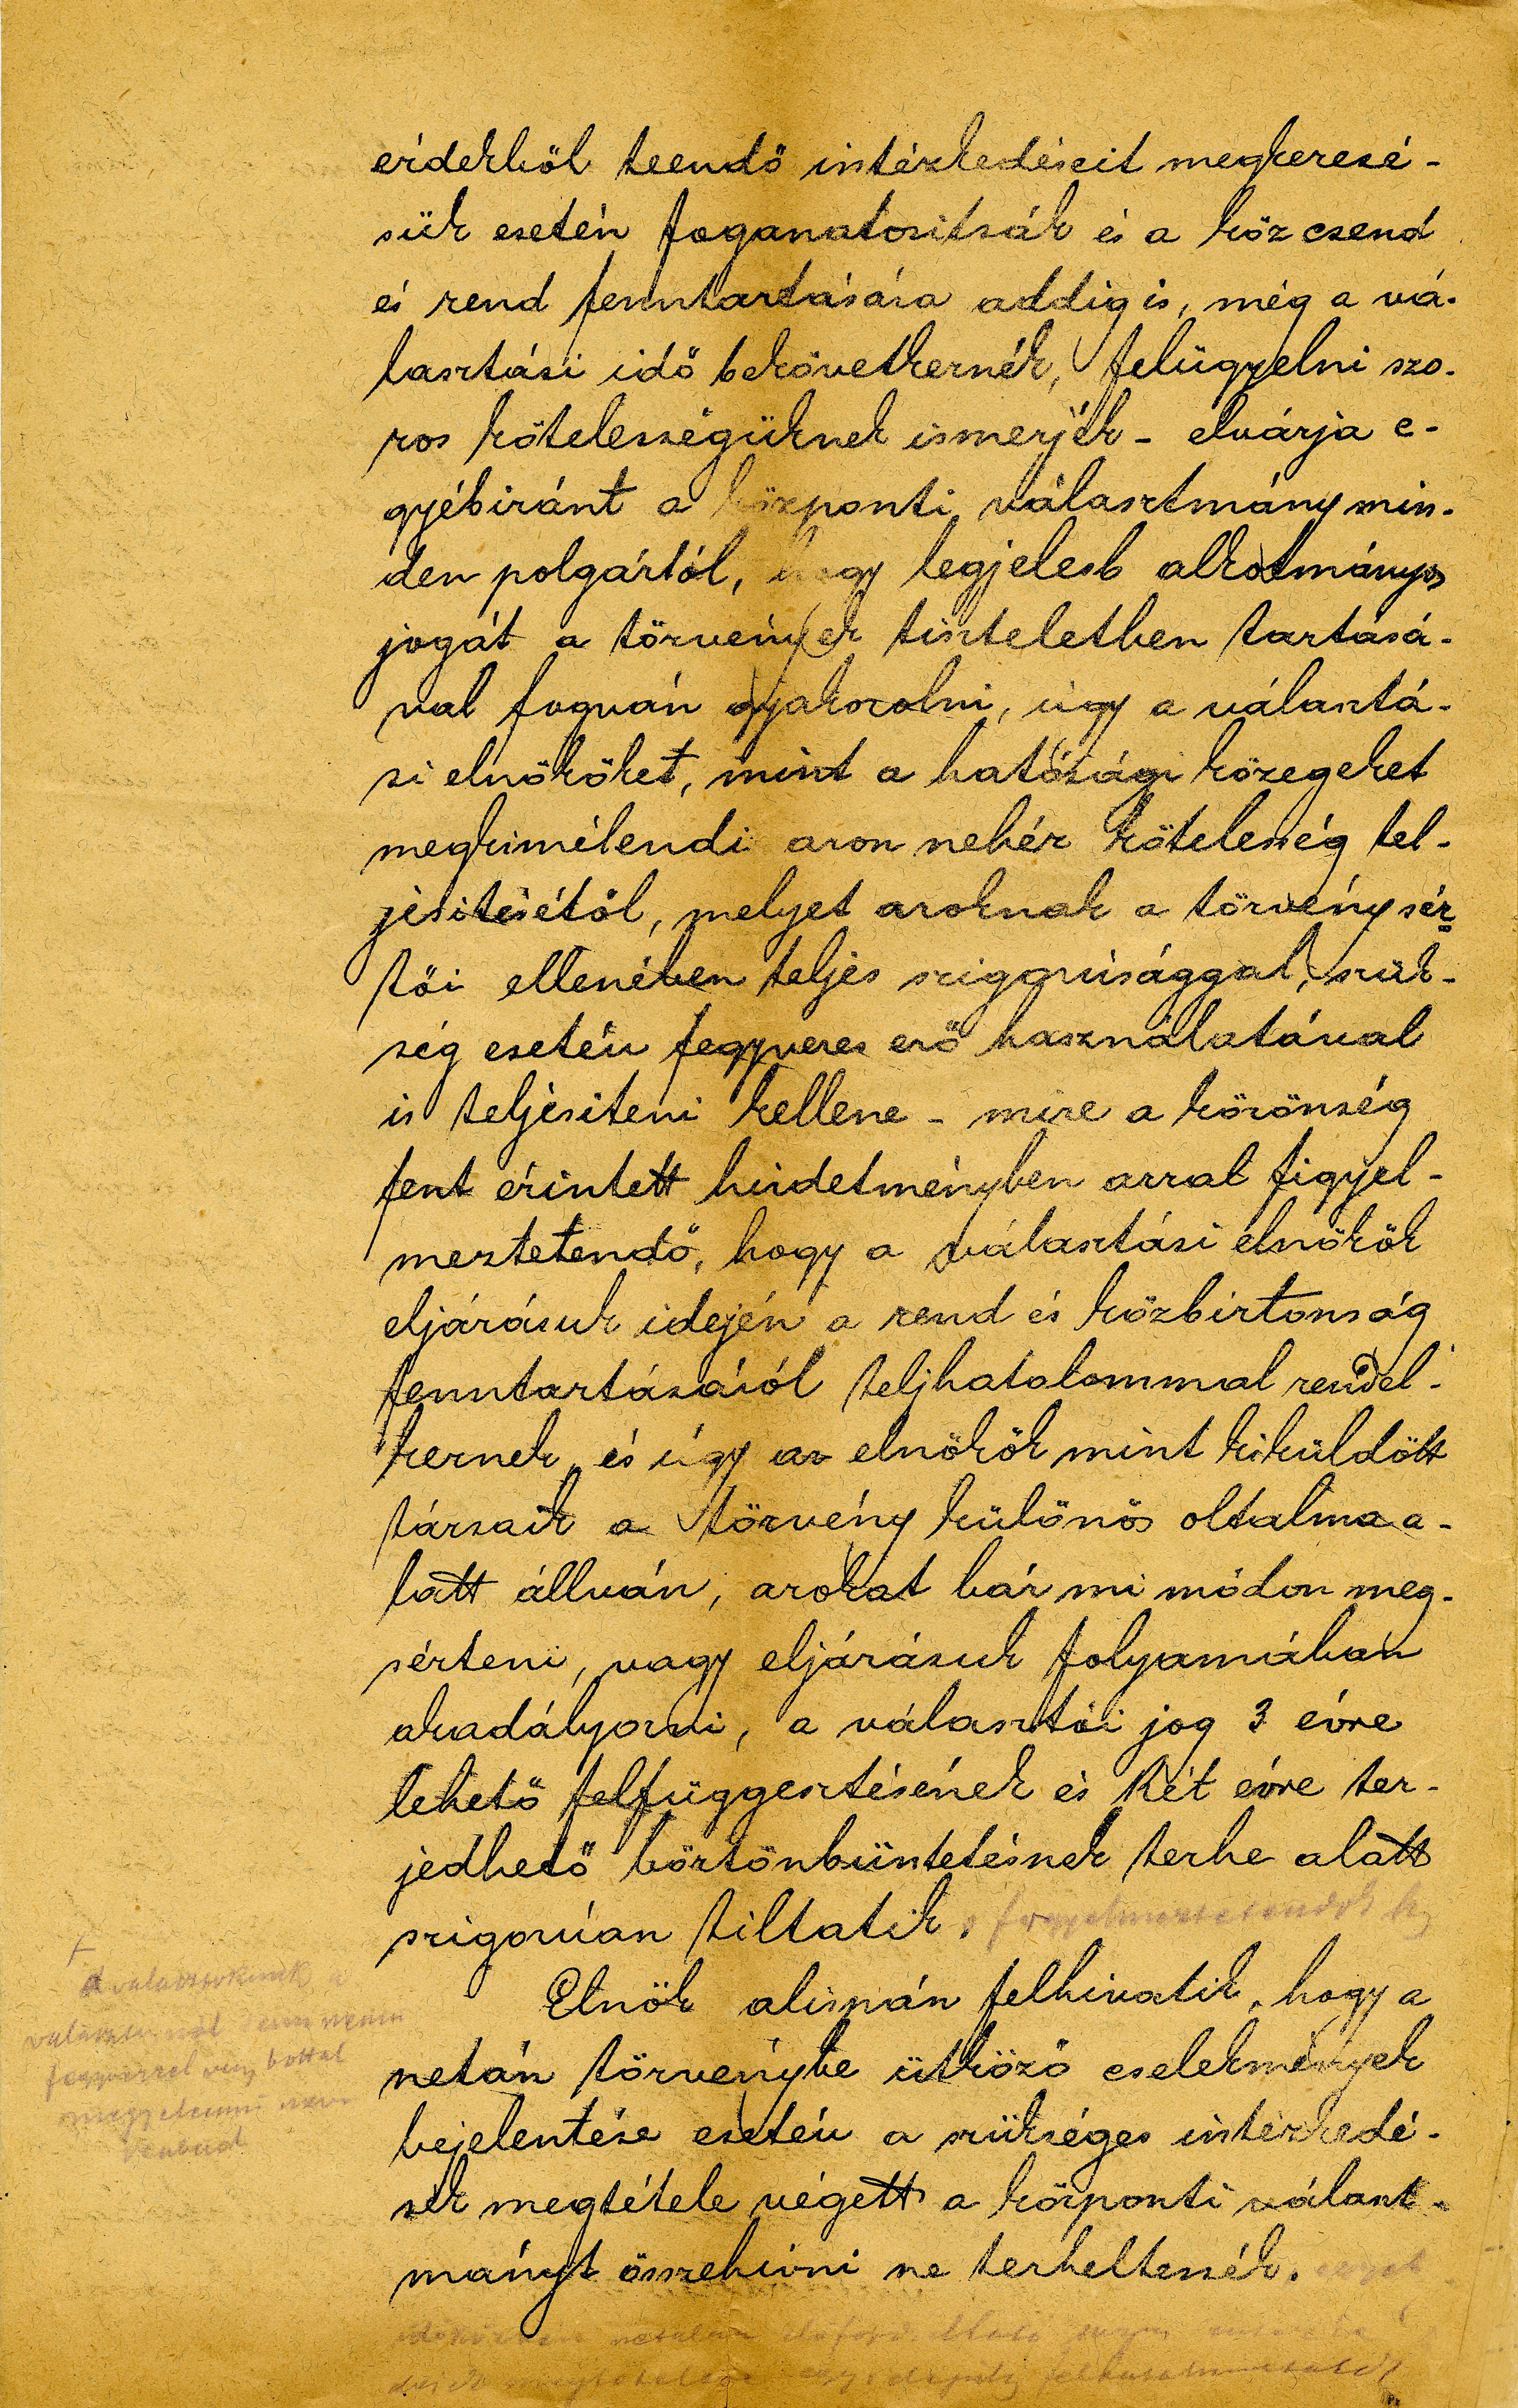 érdekből teendő intézkedéseit megkeresé-
sük esetén foganatositsák és a köz csend
és rend fenntartására addig is, még a vá-
lasztási idő bekövetkeznék, felügyelni szo-
ros kötelességüknek ismerjék - elvárja e-
gyébiránt a központi választmány min-
den polgártól, hogy legjelesb alkotmányos
jogát a törvények tiszteletben tartásá-
val fogván gyakorolni, úgy a választá-
si elnököket, mint a hatósági közegeket
megkimélendi azon nehéz kötelesség tel-
jesitésétől, melyet azoknak a törvény sér-
tői ellenében teljes szigorúsággal, szük-
ség esetén fegyveres erő használatával
is teljesiteni kellene - mire a közönség
fent érintett hirdetményben azzal figyel-
meztetendő, hogy a választási elnökök
eljárásuk idején a rend és közbiztonság
fenntartásáról teljhatalommal rendel-
keznek, és úgy az elnökök mint kiküldött
társaik a törvény különös oltalma a-
latt állván, azokat bár mi módon meg-
sérteni, vagy eljárásuk folyamában
akadályozni, a választói jog 3 évre
lehető felfüggesztésének és két évre ter-
jedhető börtönbüntetésnek terhe alatt
szigorúan tiltatik. s figyelmeztetendők
a választóknak a
fegyverrel vagy bottal
megjelenni nem
szabad
Elnök alispán felhivatik, hogy a
netán törvénybe ütköző cselekmények
bejelentése esetén a szükséges intézkedé-
sek megtétele végett a központi választ-
mányt összehivni ne terheltessék.